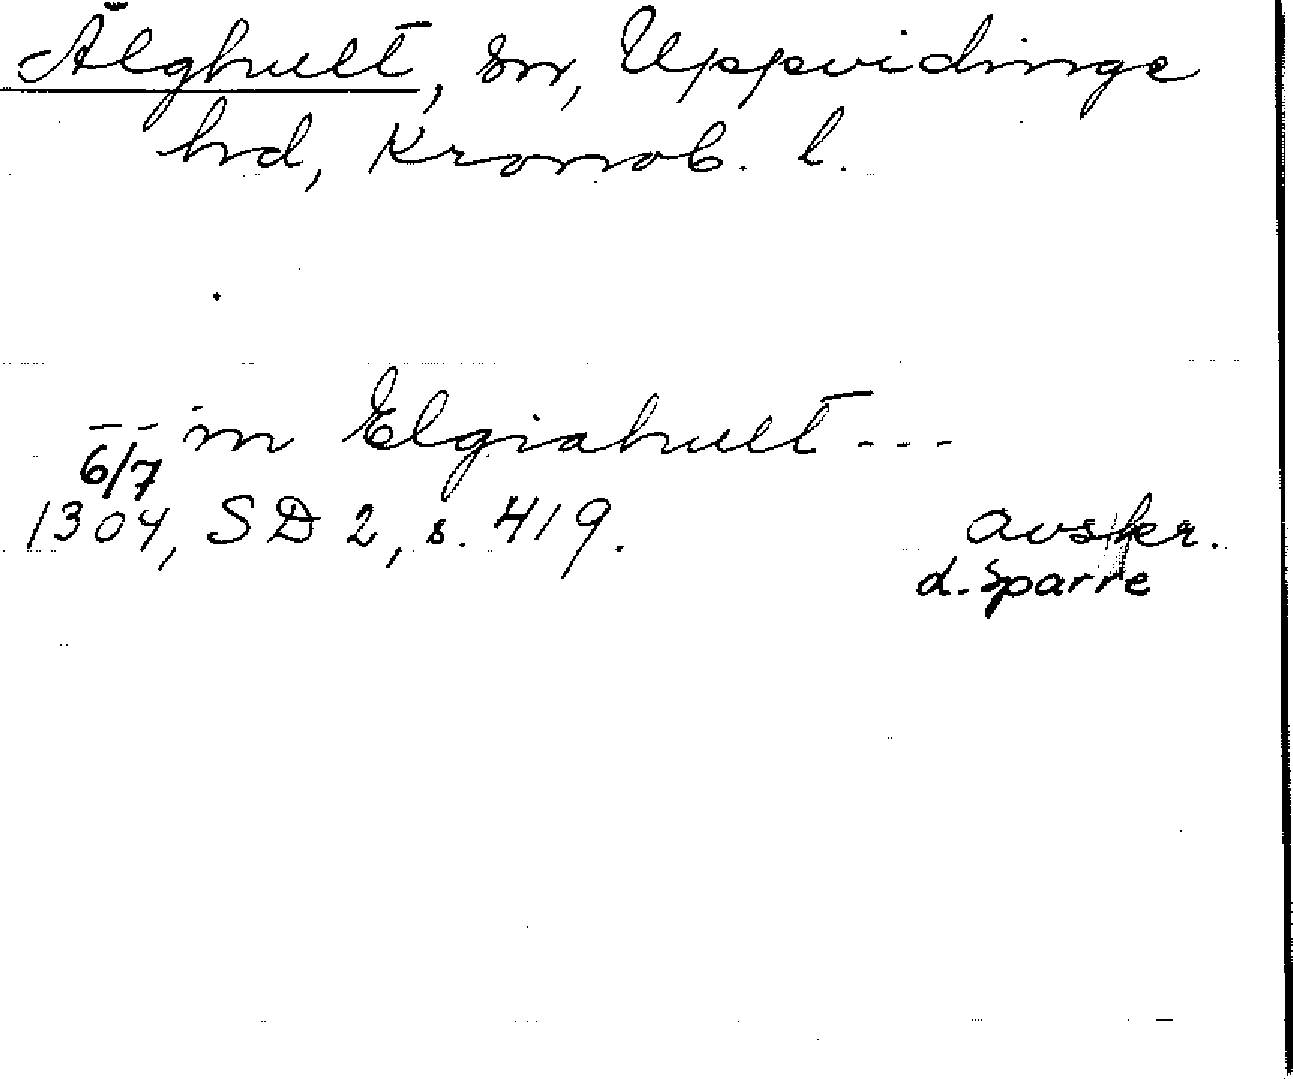 Älghult, sn, Uppvidinge
hd, Kronob. l.
-- in Elgiahult ---
6/7
1304, SD 2, s. 419.
avskr.
d. Sparre